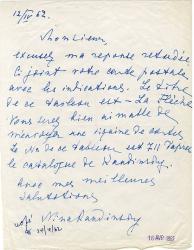 12/IV 62.
Monsieur,
excusez ma reponse retardée
Ci joint votre carte postale
avec les indications. Le titre
de ce tableau est – La Flèche
Vous serez bien aimable de
m'envoyer une dizaine de cartes
Le No de ce tableau est 711 d'après
le catalogue de Kandinsky.
Avec mes meilleures
salutations
Nina Kandinsky
16 AVR 1962